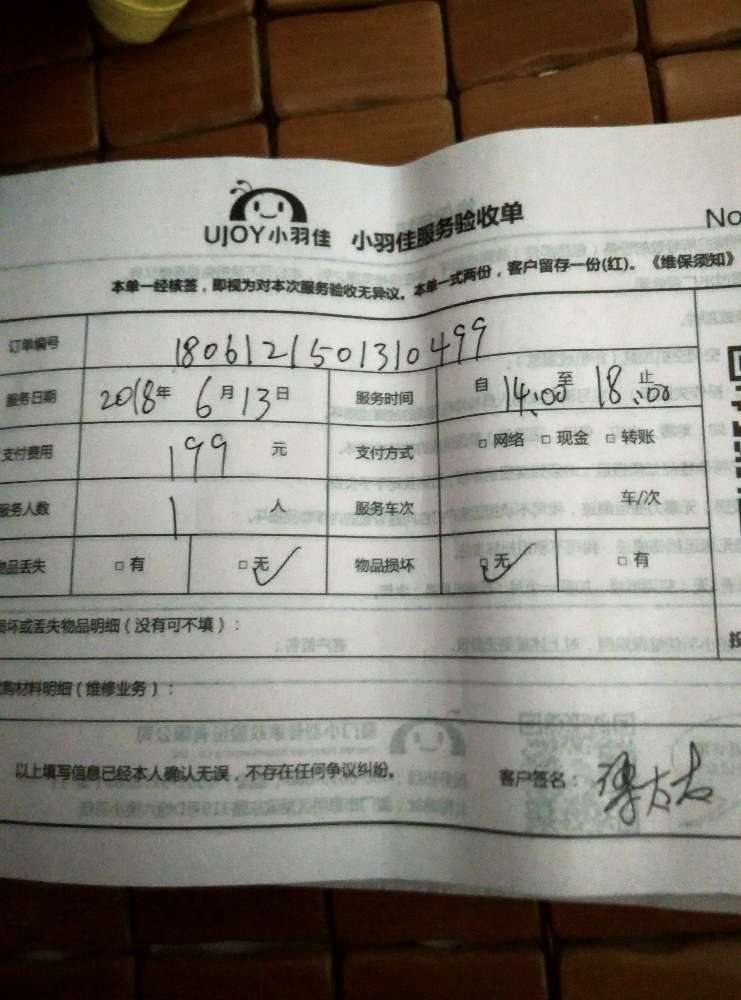 UJOY小羽佳 小羽佳服务验收单 No
本单一经核签，即视为对本次服务验收无异议。本单一式两份，客户留存一份(红)。《维保须知》
订单编号 1806121501310499
服务日期 2018年 6月 13日 服务时间 自 14:00 至 18:00 止
支付费用 199 元 支付方式 □ 网络 □ 现金 □ 转账
服务人数 1 人 服务车次 车/次
物品丢失 □ 有 □ 无 ✓ 物品损坏 □ 无 ✓ □ 有
损坏或丢失物品明细（没有可不填）：
材料明细（维修业务）：
以上填写信息已经本人确认无误，不存在任何争议纠纷。 客户签名：